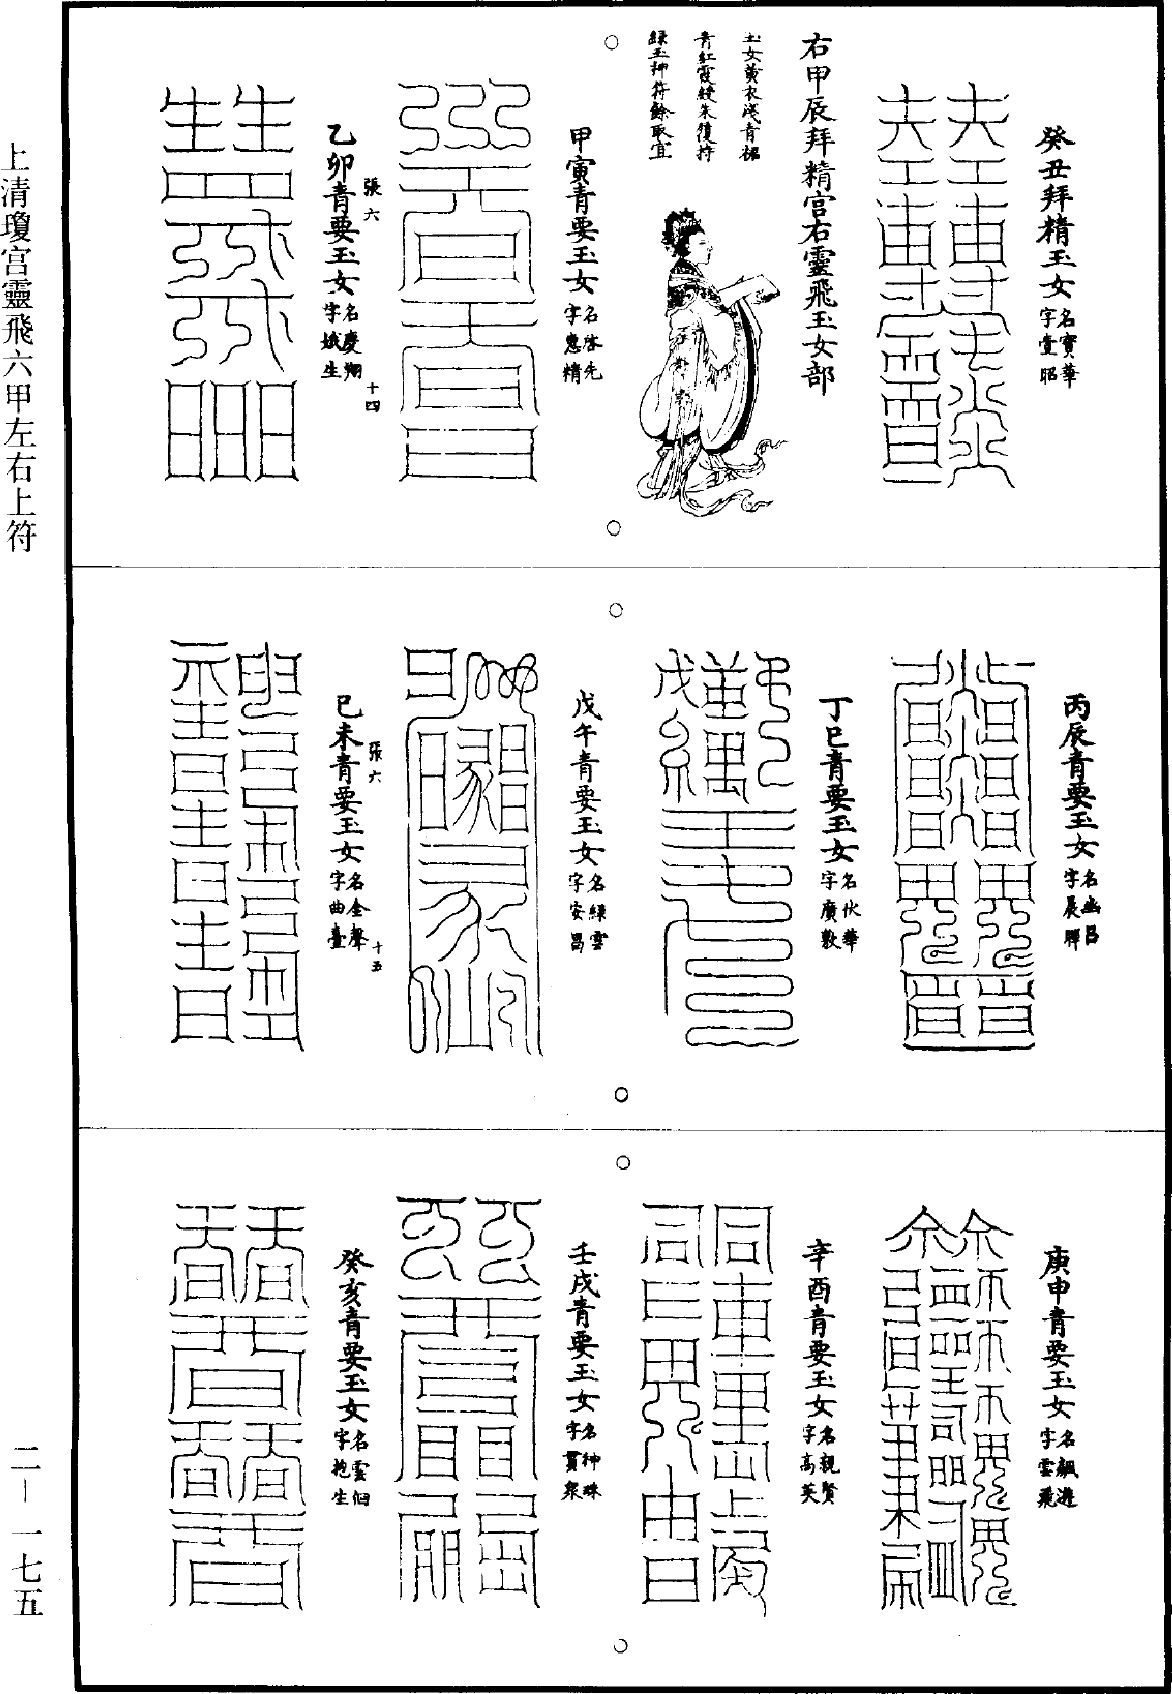 癸丑拜精玉女名寶華字堂昭
右甲辰拜精宫右靈飛玉女部
玉女黄衣淺青裙
青紅霞綬朱履持
緑玉押符餘取宜
甲寅青要玉女名啓先字惠精
張六
乙卯青要玉女名慶翔字娥生
十四
丙辰青要玉女名幽昌字晨暉
丁巳青要玉女名伏華字廣敷
戊午青要玉女名緑雲字安昌
張六
己未青要玉女名金聲字曲臺
十五
庚申青要玉女名飆遊字雲飛
辛酉青要玉女名親賢字高英
壬戌青要玉女名神珠字貫衆
癸亥青要玉女名雲徊字抱生
上清瓊宫靈飛六甲左右上符
二—一七五